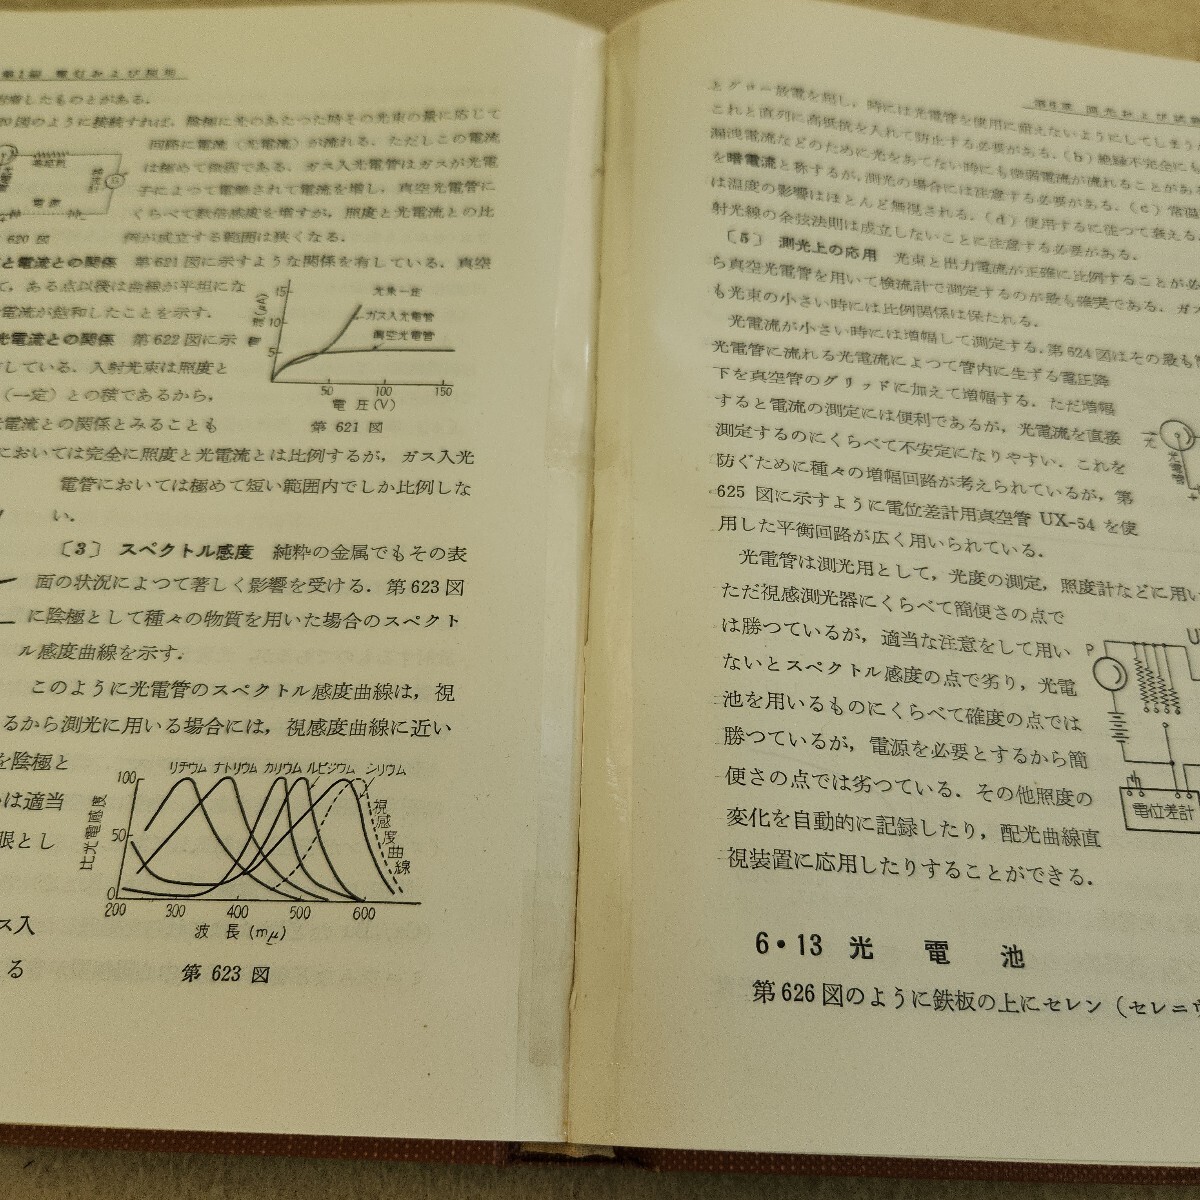 着したものとがある.
20図のように接続すれば, 陰極に光のあたつた時その光束の量に応じて
回路に電流 (光電流) が流れる. ただしこの電流
は極めて微弱である. ガス入光電管はガスが光電
子によつて電離されて電流を増し, 真空光電管に
くらべて数倍感度を増すが, 照度と光電流との比
例が成立する範囲は狭くなる.
電源
620 図
と電流との関係 第621図に示すような関係を有している. 真空
て, ある点以後は曲線が平坦にな
電流が飽和したことを示す.
光電流との関係 第622図に示
している. 入射光束は照度と
(一定) との積であるから,
電流との関係とみることも
15
10
5
光束一定
ガス入光電管
真空光電管
50 100 150
電 圧 (V)
第 621 図
においては完全に照度と光電流とは比例するが, ガス入光
電管においては極めて短い範囲内でしか比例しな
い.
〔3〕 スペクトル感度 純粋の金属でもその表
面の状況によつて著しく影響を受ける. 第623図
に陰極として種々の物質を用いた場合のスペクト
ル感度曲線を示す.
このように光電管のスペクトル感度曲線は, 視
るから測光に用いる場合には, 視感度曲線に近い
を陰極と
は適当
眼とし
ス入
る
リチウム ナトリウム カリウム ルビジウム シリウム
視感度曲線
比光電感度
100
50
0
200 300 400 500 600
波 長 (mμ)
第 623 図
上グロー放電を起し, 時には光電管を使用に耐えないようにしてしまう
これと直列に高抵抗を入れて防止する必要がある. (b) 絶縁不完全にも
漏洩電流などのために光をあてない時にも微弱電流が流れることがあ
を暗電流と称するが, 測光の場合には注意する必要がある. (c) 常温
は温度の影響はほとんど無視される. (d) 使用するに従つて衰える.
射光線の余弦法則は成立しないことに注意する必要がある.
〔5〕 測光上の応用 光束と出力電流が正確に比例することが必
ら真空光電管を用いて検流計で測定するのが最も確実である. ガス
も光束の小さい時には比例関係は保たれる.
光電流が小さい時には増幅して測定する. 第624図はその最も
光電管に流れる光電流によつて管内に生ずる電圧降
下を真空管のグリッドに加えて増幅する. ただ増幅
すると電流の測定には便利であるが, 光電流を直接
測定するのにくらべて不安定になりやすい. これを
防ぐために種々の増幅回路が考えられているが, 第
625 図に示すように電位差計用真空管 UX-54 を使
用した平衡回路が広く用いられている.
光
光電管
光電管は測光用として, 光度の測定, 照度計などに用い
ただ視感測光器にくらべて簡便さの点で
は勝つているが, 適当な注意をして用い
ないとスペクトル感度の点で劣り, 光電
池を用いるものにくらべて確度の点では
勝つているが, 電源を必要とするから簡
便さの点では劣つている. その他照度の
変化を自動的に記録したり, 配光曲線直
視装置に応用したりすることができる.
P
U
電位差計
6・13 光 電 池
第 626 図のように鉄板の上にセレン (セレニ